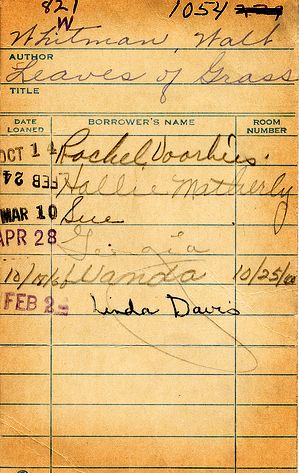 821 1054
W
Whitman, Walt
AUTHOR
Leaves of Grass
TITLE
DATE LOANED BORROWER'S NAME ROOM NUMBER
OCT 14 Rachel Voorhies.
FEB 24 Hallie
MAR 10 Sue
APR 28 Georgia
Wanda
FEB 2 Linda Davis